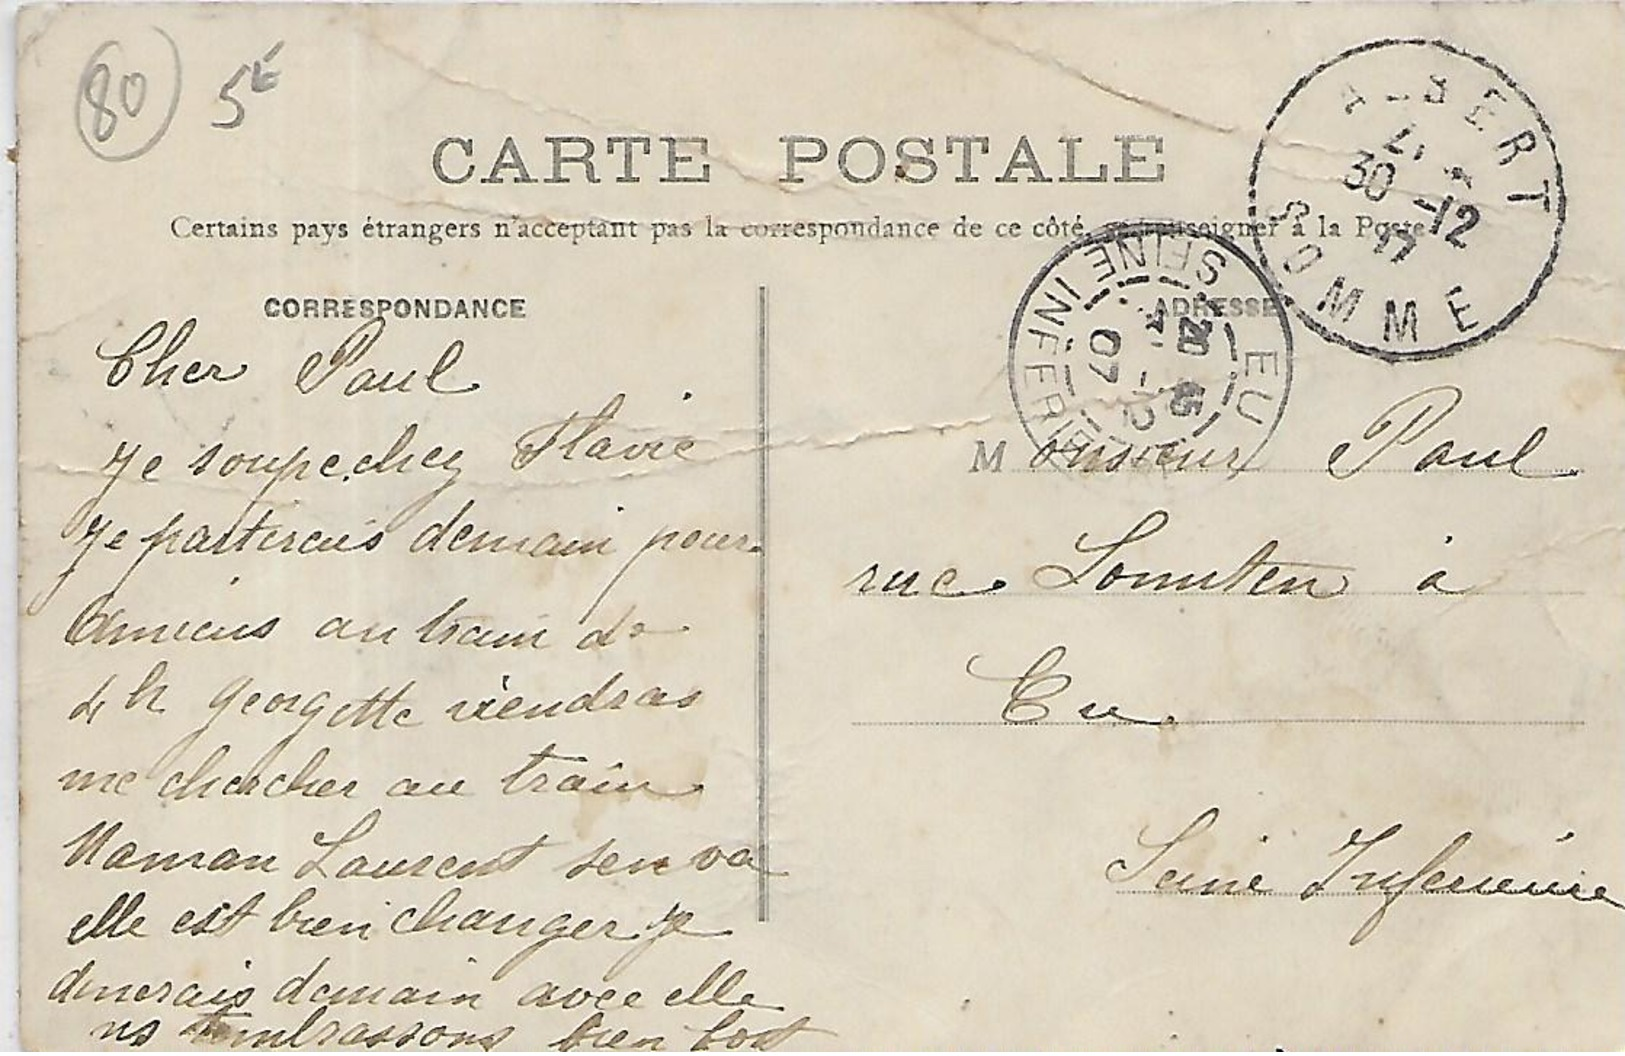 80 5€
CARTE POSTALE
Certains pays étrangers n'acceptant pas la correspondance de ce côté, se renseigner à la Poste
ALBERT
30 -12
SOMME
EU
SEINE INFERIE
20 45
-12
07
CORRESPONDANCE
Cher Paul
Je soupe chez Flavie
Je parterais demain pour
Amiens au train de
4 h georgette viendras
me chercher au train
Maman Laurent sen va
elle est bien changer je
dinerais demain avec elle
ns tembrassons bien
ADRESSE
Monsieur Paul
rue à
Eu
Seine Inferieure